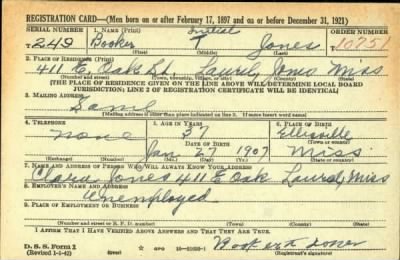 REGISTRATION CARD—(Men born on or after February 17, 1897 and on or before December 31, 1921)
SERIAL NUMBER 1. NAME (Print) ORDER NUMBER
249 Booker T Jones 10751
initial
(First) (Middle) (Last)
2. PLACE OF RESIDENCE (Print)
411 E Oak St Laurel Jones Miss
(Number and street) (Town, township, village, or city) (County) (State)
[THE PLACE OF RESIDENCE GIVEN ON THE LINE ABOVE WILL DETERMINE LOCAL BOARD
JURISDICTION; LINE 2 OF REGISTRATION CERTIFICATE WILL BE IDENTICAL]
3. MAILING ADDRESS
Same
[Mailing address if other than place indicated on line 2. If same insert word same]
4. TELEPHONE 5. AGE IN YEARS 6. PLACE OF BIRTH
none 37 Ellisville
DATE OF BIRTH (Town or county)
Jan 27 1907 Miss
(Exchange) (Number) (Mo.) (Day) (Yr.) (State or country)
7. NAME AND ADDRESS OF PERSON WHO WILL ALWAYS KNOW YOUR ADDRESS
Clara Jones 411 E Oak Laurel, Miss
8. EMPLOYER'S NAME AND ADDRESS
Unemployed
9. PLACE OF EMPLOYMENT OR BUSINESS
(Number and street or R. F. D. number) (Town) (County) (State)
I AFFIRM THAT I HAVE VERIFIED ABOVE ANSWERS AND THAT THEY ARE TRUE.
D. S. S. Form 1
(Revised 1-1-42) GPO Booker T Jones
(Registrant's signature)